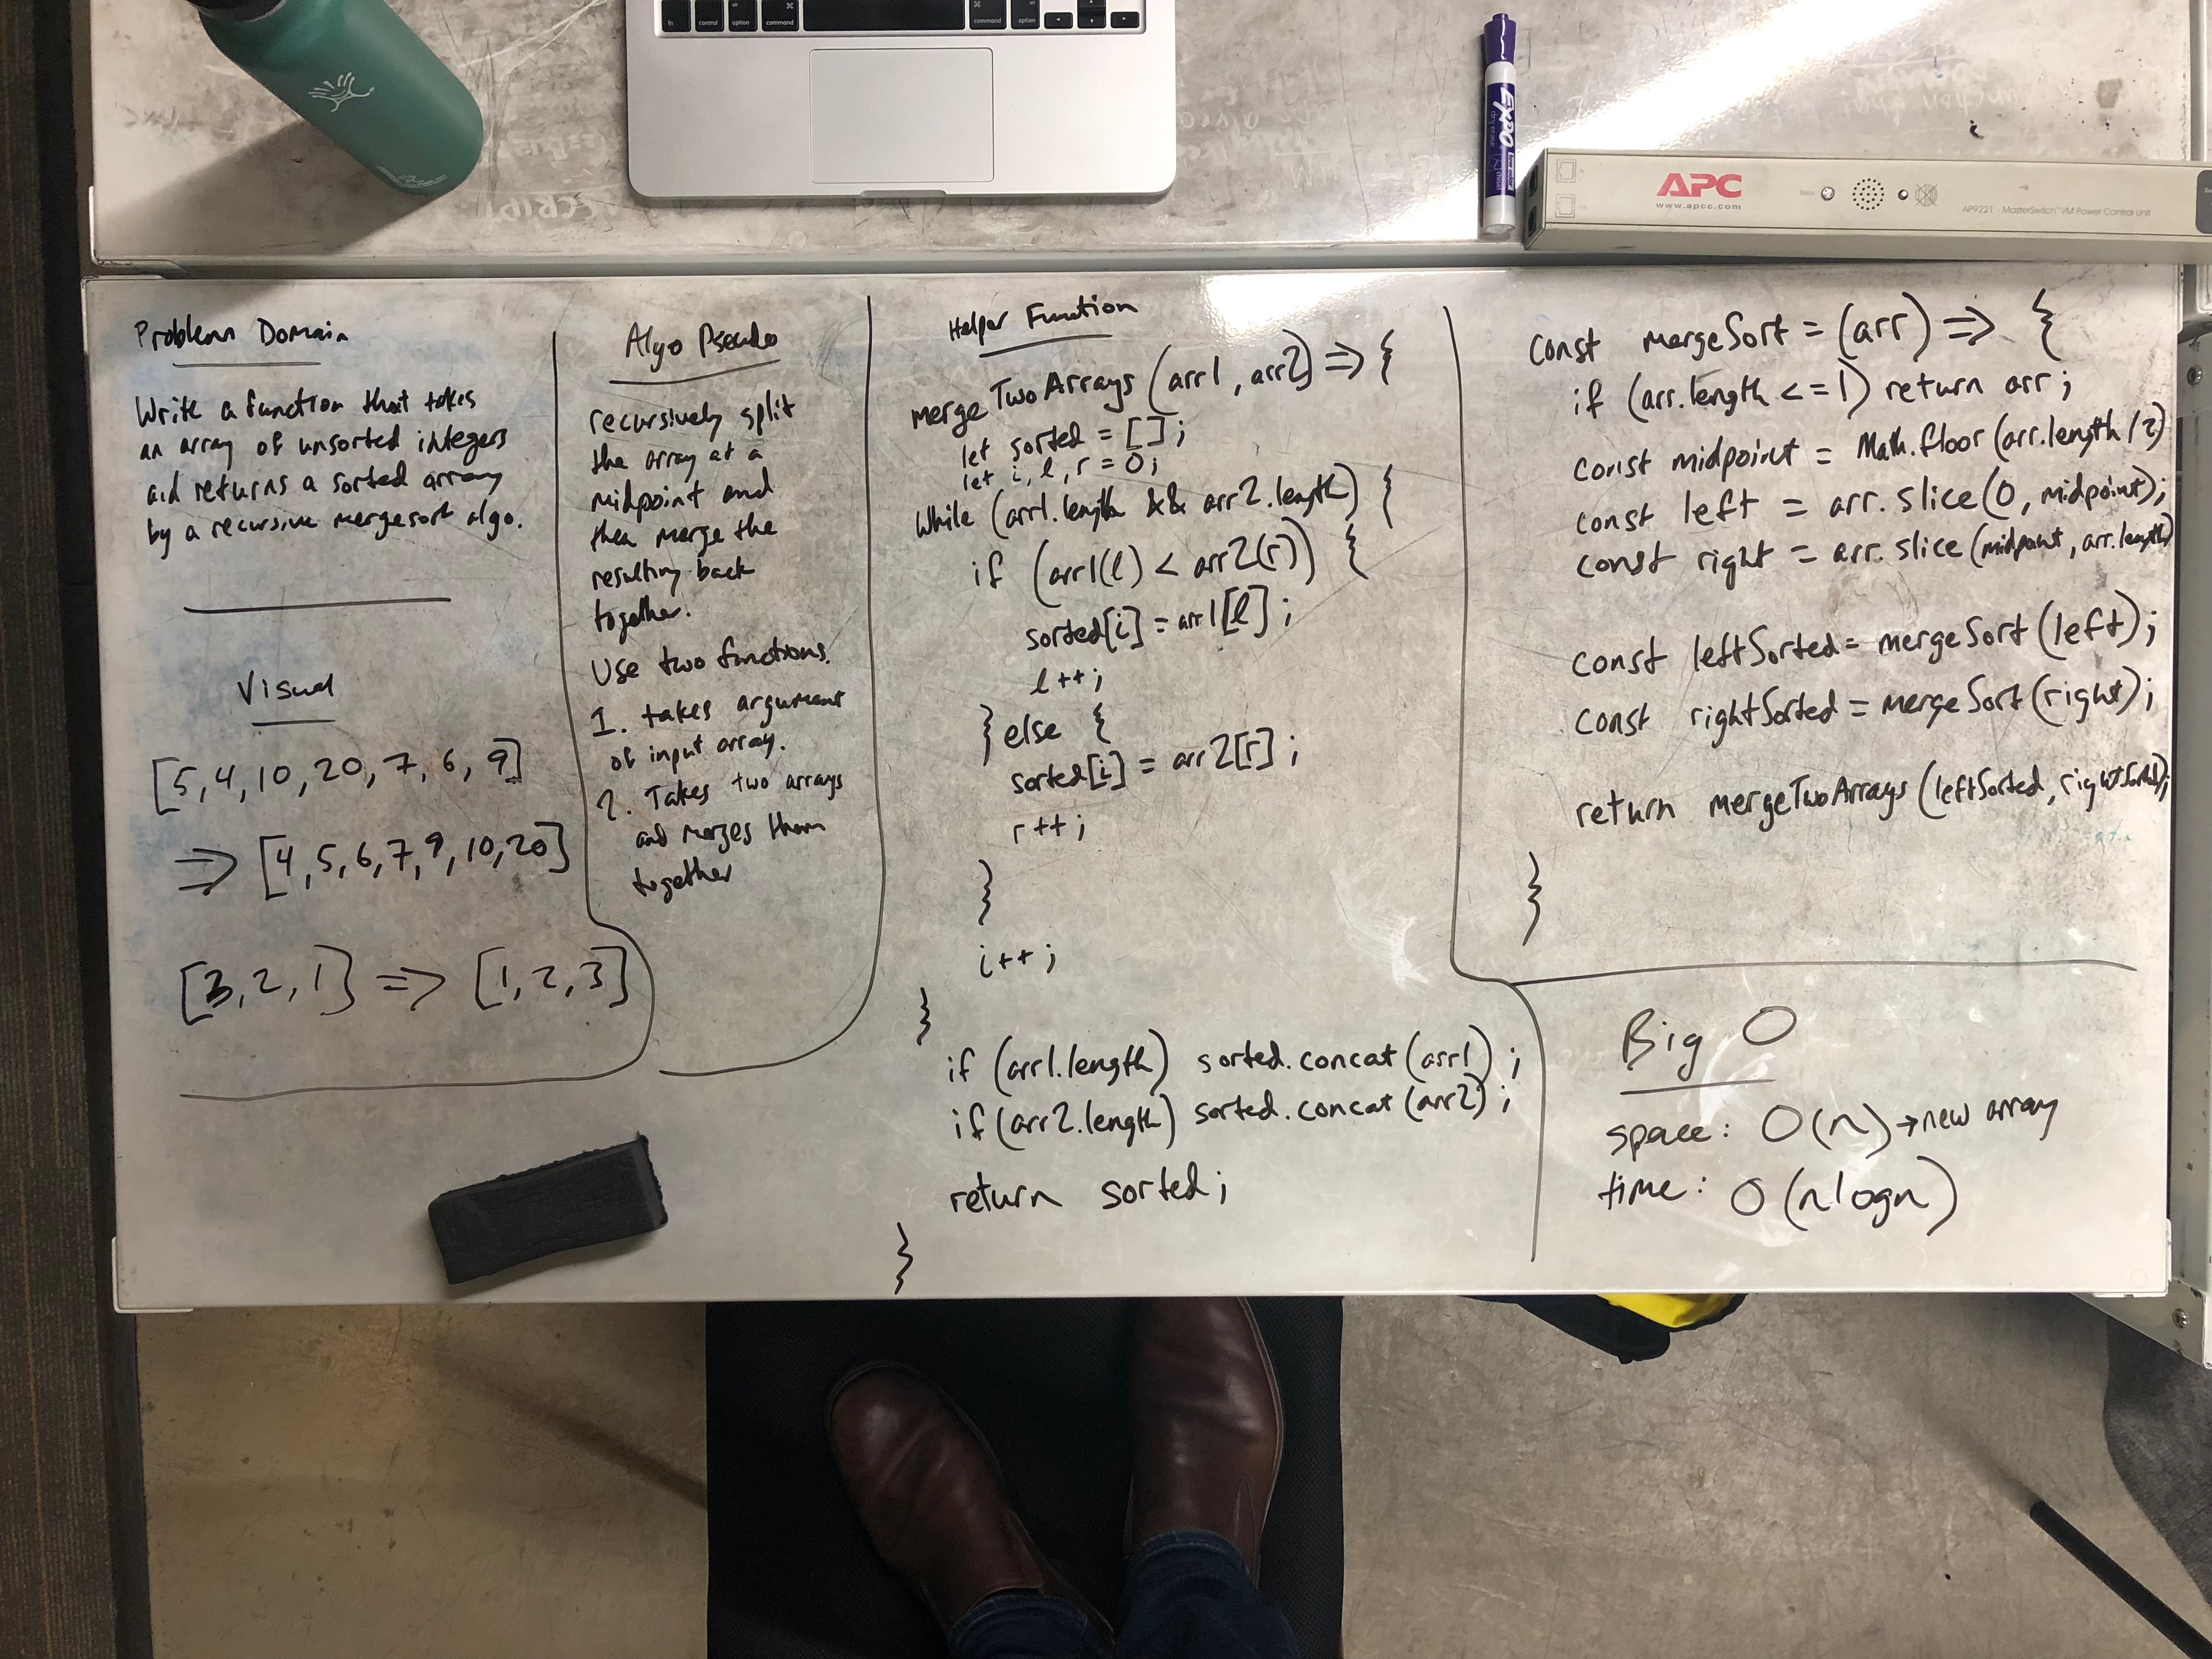 fn
control
option
command
command
option
EXPO
dry erase
APC
www.apcc.com
Status
AP9221 - MasterSwitch VM Power Control Unit
Problem Domain
Write a function that takes
an array of unsorted integers
and returns a sorted array
by a recursive mergesort algo.
Visual
[5, 4, 10, 20, 7, 6, 9]
=> [4, 5, 6, 7, 9, 10, 20]
[3, 2, 1] => [1, 2, 3]
Algo Pseudo
recursively split
the array at a
midpoint and
then merge the
resulting back
together.
Use two functions.
1. takes argument
of input array.
2. Takes two arrays
and merges them
together
Helper Function
mergeTwoArrays (arr1, arr2) => {
let sorted = [];
let i, l, r = 0;
while (arr1.length && arr2.length) {
if (arr1(l) < arr2(r)) {
sorted[i] = arr1[l];
l++;
} else {
sorted[i] = arr2[r];
r++;
}
i++;
}
if (arr1.length) sorted.concat(arr1);
if (arr2.length) sorted.concat(arr2);
return sorted;
}
const mergeSort = (arr) => {
if (arr.length <= 1) return arr;
const midpoint = Math.floor(arr.length / 2)
const left = arr.slice(0, midpoint);
const right = arr.slice(midpoint, arr.length)
const leftSorted = mergeSort(left);
const rightSorted = mergeSort(right);
return mergeTwoArrays(leftSorted, rightSorted);
}
Big O
space: O(n) → new array
time: O(nlogn)